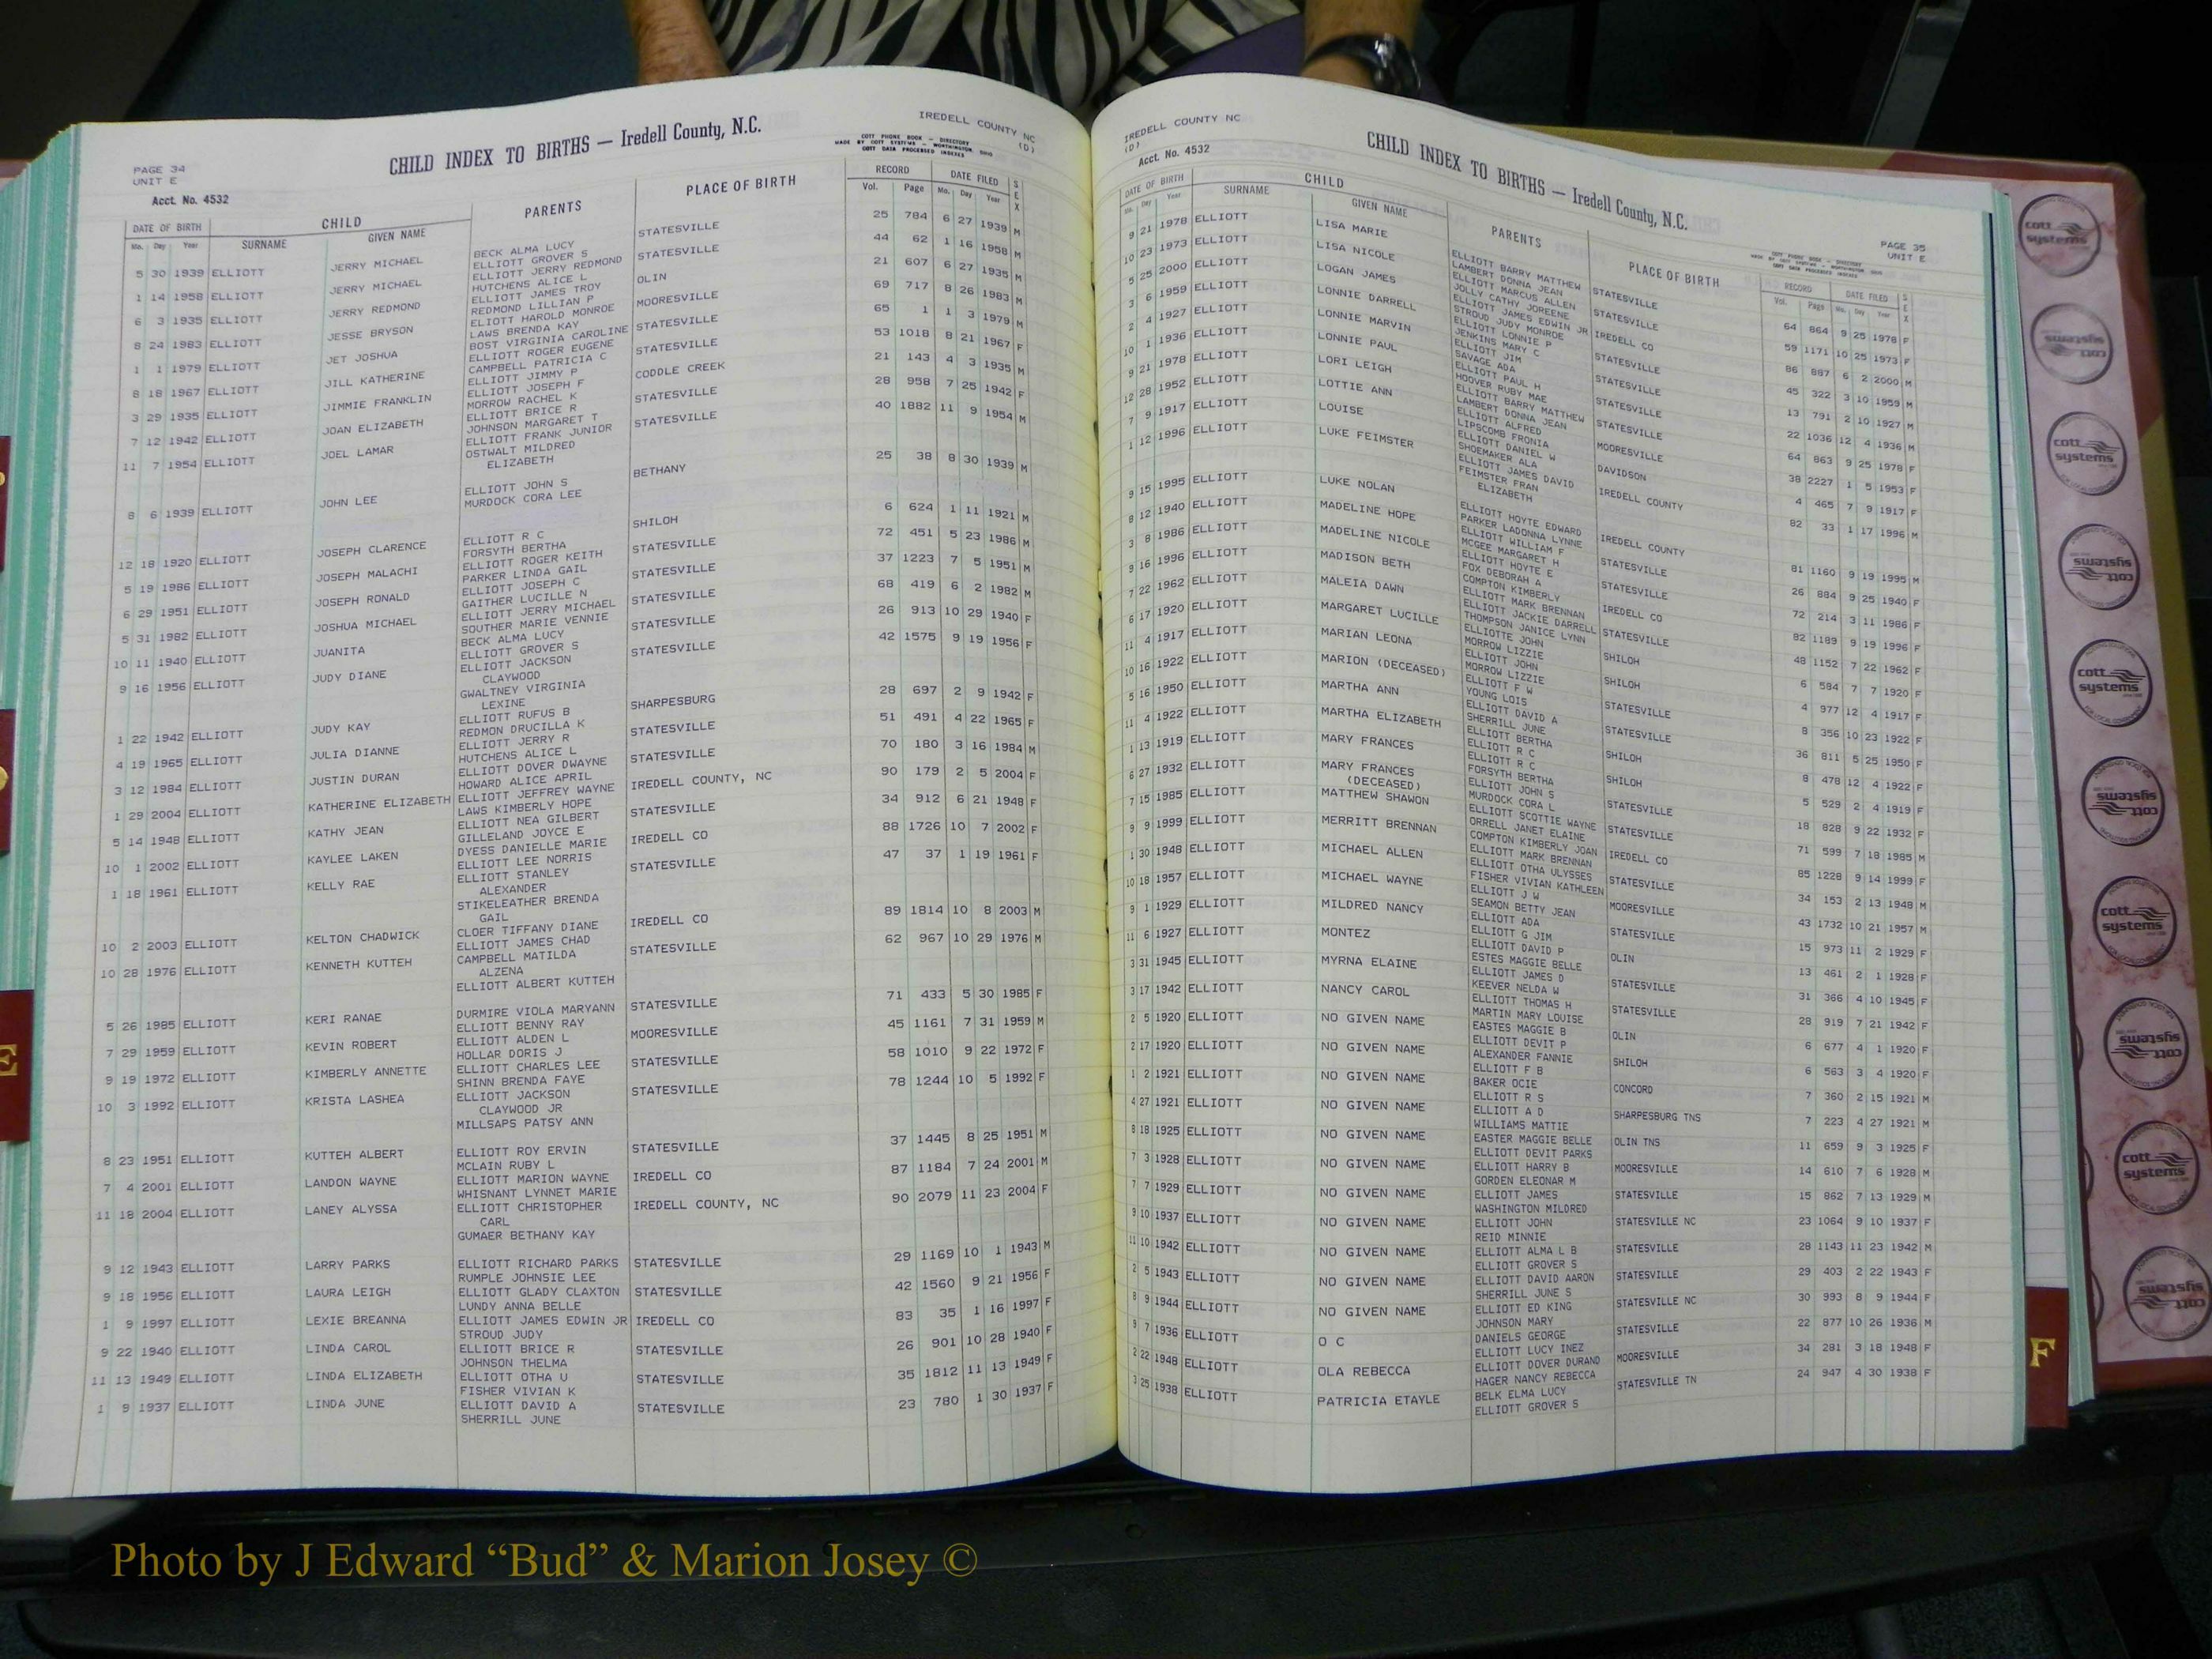 PAGE 34
UNIT E
Acct. No. 4532
CHILD INDEX TO BIRTHS — Iredell County, N.C.
IREDELL COUNTY NC
(D)
COTT PHONE BOOK — DIRECTORY
MADE BY COTT SYSTEMS — WORTHINGTON, OHIO
COTT DATA PROCESSED INDEXES
DATE OF BIRTH CHILD PARENTS PLACE OF BIRTH RECORD DATE FILED SEX
Mo. Day Year SURNAME GIVEN NAME Vol. Page Mo. Day Year
5 30 1939 ELLIOTT JERRY MICHAEL BECK ALMA LUCY STATESVILLE 25 784 6 27 1939 M
ELLIOTT GROVER S
1 14 1958 ELLIOTT JERRY MICHAEL ELLIOTT JERRY REDMOND STATESVILLE 44 62 1 16 1958 M
HUTCHENS ALICE L
6 3 1935 ELLIOTT JERRY REDMOND ELLIOTT JAMES TROY OLIN 21 607 6 27 1935 M
REDMOND LILLIAN P
8 24 1983 ELLIOTT JESSE BRYSON ELIOTT HAROLD MONROE MOORESVILLE 69 717 8 26 1983 M
LAWS BRENDA KAY
1 1 1979 ELLIOTT JET JOSHUA BOST VIRGINIA CAROLINE STATESVILLE 65 1 1 3 1979 M
ELLIOTT ROGER EUGENE
8 18 1967 ELLIOTT JILL KATHERINE CAMPBELL PATRICIA C STATESVILLE 53 1018 8 21 1967 F
ELLIOTT JIMMY P
3 29 1935 ELLIOTT JIMMIE FRANKLIN ELLIOTT JOSEPH F CODDLE CREEK 21 143 4 3 1935 M
MORROW RACHEL K
7 12 1942 ELLIOTT JOAN ELIZABETH ELLIOTT BRICE R STATESVILLE 28 958 7 25 1942 F
JOHNSON MARGARET T
11 7 1954 ELLIOTT JOEL LAMAR ELLIOTT FRANK JUNIOR STATESVILLE 40 1882 11 9 1954 M
OSTWALT MILDRED
ELIZABETH
8 6 1939 ELLIOTT JOHN LEE ELLIOTT JOHN S BETHANY 25 38 8 30 1939 M
MURDOCK CORA LEE
12 18 1920 ELLIOTT JOSEPH CLARENCE ELLIOTT R C SHILOH 6 624 1 11 1921 M
FORSYTH BERTHA
5 19 1986 ELLIOTT JOSEPH MALACHI ELLIOTT ROGER KEITH STATESVILLE 72 451 5 23 1986 M
PARKER LINDA GAIL
6 29 1951 ELLIOTT JOSEPH RONALD ELLIOTT JOSEPH C STATESVILLE 37 1223 7 5 1951 M
GAITHER LUCILLE N
5 31 1982 ELLIOTT JOSHUA MICHAEL ELLIOTT JERRY MICHAEL STATESVILLE 68 419 6 2 1982 M
SOUTHER MARIE VENNIE
10 11 1940 ELLIOTT JUANITA BECK ALMA LUCY STATESVILLE 26 913 10 29 1940 F
ELLIOTT GROVER S
9 16 1956 ELLIOTT JUDY DIANE ELLIOTT JACKSON STATESVILLE 42 1575 9 19 1956 F
CLAYWOOD
GWALTNEY VIRGINIA
LEXINE
1 22 1942 ELLIOTT JUDY KAY ELLIOTT RUFUS B SHARPESBURG 28 697 2 9 1942 F
REDMON DRUCILLA K
4 19 1965 ELLIOTT JULIA DIANNE ELLIOTT JERRY R STATESVILLE 51 491 4 22 1965 F
HUTCHENS ALICE L
3 12 1984 ELLIOTT JUSTIN DURAN ELLIOTT DOVER DWAYNE STATESVILLE 70 180 3 16 1984 M
HOWARD ALICE APRIL
1 29 2004 ELLIOTT KATHERINE ELIZABETH ELLIOTT JEFFREY WAYNE IREDELL COUNTY, NC 90 179 2 5 2004 F
LAWS KIMBERLY HOPE
5 14 1948 ELLIOTT KATHY JEAN ELLIOTT NEA GILBERT STATESVILLE 34 912 6 21 1948 F
GILLELAND JOYCE E
10 1 2002 ELLIOTT KAYLEE LAKEN DYESS DANIELLE MARIE IREDELL CO 88 1726 10 7 2002 F
ELLIOTT LEE NORRIS
1 18 1961 ELLIOTT KELLY RAE ELLIOTT STANLEY STATESVILLE 47 37 1 19 1961 F
ALEXANDER
STIKELEATHER BRENDA
GAIL
10 2 2003 ELLIOTT KELTON CHADWICK CLOER TIFFANY DIANE IREDELL CO 89 1814 10 8 2003 M
ELLIOTT JAMES CHAD
10 28 1976 ELLIOTT KENNETH KUTTEH CAMPBELL MATILDA STATESVILLE 62 967 10 29 1976 M
ALZENA
ELLIOTT ALBERT KUTTEH
5 26 1985 ELLIOTT KERI RANAE DURMIRE VIOLA MARYANN STATESVILLE 71 433 5 30 1985 F
ELLIOTT BENNY RAY
7 29 1959 ELLIOTT KEVIN ROBERT ELLIOTT ALDEN L MOORESVILLE 45 1161 7 31 1959 M
HOLLAR DORIS J
9 19 1972 ELLIOTT KIMBERLY ANNETTE ELLIOTT CHARLES LEE STATESVILLE 58 1010 9 22 1972 F
SHINN BRENDA FAYE
10 3 1992 ELLIOTT KRISTA LASHEA ELLIOTT JACKSON STATESVILLE 78 1244 10 5 1992 F
CLAYWOOD JR
MILLSAPS PATSY ANN
8 23 1951 ELLIOTT KUTTEH ALBERT ELLIOTT ROY ERVIN STATESVILLE 37 1445 8 25 1951 M
MCLAIN RUBY L
7 4 2001 ELLIOTT LANDON WAYNE ELLIOTT MARION WAYNE IREDELL CO 87 1184 7 24 2001 M
WHISNANT LYNNET MARIE
11 18 2004 ELLIOTT LANEY ALYSSA ELLIOTT CHRISTOPHER IREDELL COUNTY, NC 90 2079 11 23 2004 F
CARL
GUMAER BETHANY KAY
9 12 1943 ELLIOTT LARRY PARKS ELLIOTT RICHARD PARKS STATESVILLE 29 1169 10 1 1943 M
RUMPLE JOHNSIE LEE
9 18 1956 ELLIOTT LAURA LEIGH ELLIOTT GLADY CLAXTON STATESVILLE 42 1560 9 21 1956 F
LUNDY ANNA BELLE
1 9 1997 ELLIOTT LEXIE BREANNA ELLIOTT JAMES EDWIN JR IREDELL CO 83 35 1 16 1997 F
STROUD JUDY
9 22 1940 ELLIOTT LINDA CAROL ELLIOTT BRICE R STATESVILLE 26 901 10 28 1940 F
JOHNSON THELMA
11 13 1949 ELLIOTT LINDA ELIZABETH ELLIOTT OTHA U STATESVILLE 35 1812 11 13 1949 F
FISHER VIVIAN K
1 9 1937 ELLIOTT LINDA JUNE ELLIOTT DAVID A STATESVILLE 23 780 1 30 1937 F
SHERRILL JUNE
IREDELL COUNTY NC
(D)
Acct. No. 4532
CHILD INDEX TO BIRTHS — Iredell County, N.C.
PAGE 35
UNIT E
COTT PHONE BOOK — DIRECTORY
MADE BY COTT SYSTEMS — WORTHINGTON, OHIO
COTT DATA PROCESSED INDEXES
DATE OF BIRTH CHILD PARENTS PLACE OF BIRTH RECORD DATE FILED SEX
Mo. Day Year SURNAME GIVEN NAME Vol. Page Mo. Day Year
9 21 1978 ELLIOTT LISA MARIE ELLIOTT BARRY MATTHEW STATESVILLE 64 864 9 25 1978 F
LAMBERT DONNA JEAN
10 23 1973 ELLIOTT LISA NICOLE ELLIOTT MARCUS ALLEN STATESVILLE 59 1171 10 25 1973 F
JOLLY CATHY JOREENE
5 25 2000 ELLIOTT LOGAN JAMES ELLIOTT JAMES EDWIN JR IREDELL CO 86 887 6 2 2000 M
STROUD JUDY MONROE
3 6 1959 ELLIOTT LONNIE DARRELL ELLIOTT LONNIE P STATESVILLE 45 322 3 10 1959 M
JENKINS MARY C
2 4 1927 ELLIOTT LONNIE MARVIN ELLIOTT JIM STATESVILLE 13 791 2 10 1927 M
SAVAGE ADA
10 1 1936 ELLIOTT LONNIE PAUL ELLIOTT PAUL H STATESVILLE 22 1036 12 4 1936 M
HOOVER RUBY MAE
9 21 1978 ELLIOTT LORI LEIGH ELLIOTT BARRY MATTHEW STATESVILLE 64 863 9 25 1978 F
LAMBERT DONNA JEAN
12 28 1952 ELLIOTT LOTTIE ANN ELLIOTT ALFRED MOORESVILLE 38 2227 1 5 1953 F
LIPSCOMB FRONIA
7 9 1917 ELLIOTT LOUISE ELLIOTT DANIEL W DAVIDSON 4 465 7 9 1917 F
SHOEMAKER ALA
1 12 1996 ELLIOTT LUKE FEIMSTER ELLIOTT JAMES DAVID IREDELL COUNTY 82 33 1 17 1996 M
FEIMSTER FRAN
ELIZABETH
9 15 1995 ELLIOTT LUKE NOLAN ELLIOTT HOYTE EDWARD IREDELL COUNTY 81 1160 9 19 1995 M
PARKER LADONNA LYNNE
8 12 1940 ELLIOTT MADELINE HOPE ELLIOTT WILLIAM F STATESVILLE 26 884 9 25 1940 F
MCGEE MARGARET H
3 8 1986 ELLIOTT MADELINE NICOLE ELLIOTT HOYTE E STATESVILLE 72 214 3 11 1986 F
FOX DEBORAH A
9 16 1996 ELLIOTT MADISON BETH COMPTON KIMBERLY IREDELL CO 82 1189 9 19 1996 F
ELLIOTT MARK BRENNAN
7 22 1962 ELLIOTT MALEIA DAWN ELLIOTT JACKIE DARRELL STATESVILLE 48 1152 7 22 1962 F
THOMPSON JANICE LYNN
6 17 1920 ELLIOTT MARGARET LUCILLE ELLIOTTE JOHN SHILOH 6 584 7 7 1920 F
MORROW LIZZIE
11 4 1917 ELLIOTT MARIAN LEONA ELLIOTT JOHN SHILOH 4 977 12 4 1917 F
MORROW LIZZIE
10 16 1922 ELLIOTT MARION (DECEASED) ELLIOTT F W STATESVILLE 8 356 10 23 1922 F
YOUNG LOIS
5 16 1950 ELLIOTT MARTHA ANN ELLIOTT DAVID A STATESVILLE 36 811 5 25 1950 F
SHERRILL JUNE
11 4 1922 ELLIOTT MARTHA ELIZABETH ELLIOTT BERTHA SHILOH 8 478 12 4 1922 F
ELLIOTT R C
1 13 1919 ELLIOTT MARY FRANCES ELLIOTT R C SHILOH 5 529 2 4 1919 F
FORSYTH BERTHA
6 27 1932 ELLIOTT MARY FRANCES ELLIOTT JOHN S STATESVILLE 18 828 9 22 1932 F
(DECEASED) MURDOCK CORA L
7 15 1985 ELLIOTT MATTHEW SHAWON ELLIOTT SCOTTIE WAYNE STATESVILLE 71 599 7 18 1985 M
ORRELL JANET ELAINE
9 9 1999 ELLIOTT MERRITT BRENNAN COMPTON KIMBERLY JOAN IREDELL CO 85 1228 9 14 1999 F
ELLIOTT MARK BRENNAN
1 30 1948 ELLIOTT MICHAEL ALLEN ELLIOTT OTHA ULYSSES STATESVILLE 34 153 2 13 1948 M
FISHER VIVIAN KATHLEEN
10 18 1957 ELLIOTT MICHAEL WAYNE ELLIOTT J W MOORESVILLE 43 1732 10 21 1957 M
SEAMON BETTY JEAN
9 1 1929 ELLIOTT MILDRED NANCY ELLIOTT ADA STATESVILLE 15 973 11 2 1929 F
ELLIOTT G JIM
11 6 1927 ELLIOTT MONTEZ ELLIOTT DAVID P OLIN 13 461 2 1 1928 F
ESTES MAGGIE BELLE
3 31 1945 ELLIOTT MYRNA ELAINE ELLIOTT JAMES D STATESVILLE 31 366 4 10 1945 F
KEEVER NELDA W
3 17 1942 ELLIOTT NANCY CAROL ELLIOTT THOMAS H STATESVILLE 28 919 7 21 1942 F
MARTIN MARY LOUISE
2 5 1920 ELLIOTT NO GIVEN NAME EASTES MAGGIE B OLIN 6 677 4 1 1920 F
ELLIOTT DEVIT P
2 17 1920 ELLIOTT NO GIVEN NAME ALEXANDER FANNIE SHILOH 6 563 3 4 1920 F
ELLIOTT F B
1 2 1921 ELLIOTT NO GIVEN NAME BAKER OCIE CONCORD 7 360 2 15 1921 M
ELLIOTT R S
4 27 1921 ELLIOTT NO GIVEN NAME ELLIOTT A D SHARPESBURG TNS 7 223 4 27 1921 M
WILLIAMS MATTIE
8 18 1925 ELLIOTT NO GIVEN NAME EASTER MAGGIE BELLE OLIN TNS 11 659 9 3 1925 F
ELLIOTT DEVIT PARKS
7 3 1928 ELLIOTT NO GIVEN NAME ELLIOTT HARRY B MOORESVILLE 14 610 7 6 1928 M
GORDEN ELEONAR M
7 7 1929 ELLIOTT NO GIVEN NAME ELLIOTT JAMES STATESVILLE 15 862 7 13 1929 M
WASHINGTON MILDRED
9 10 1937 ELLIOTT NO GIVEN NAME ELLIOTT JOHN STATESVILLE NC 23 1064 9 10 1937 F
REID MINNIE
11 10 1942 ELLIOTT NO GIVEN NAME ELLIOTT ALMA L B STATESVILLE 28 1143 11 23 1942 M
ELLIOTT GROVER S
2 5 1943 ELLIOTT NO GIVEN NAME ELLIOTT DAVID AARON STATESVILLE 29 403 2 22 1943 F
SHERRILL JUNE S
8 9 1944 ELLIOTT NO GIVEN NAME ELLIOTT ED KING STATESVILLE NC 30 993 8 9 1944 F
JOHNSON MARY
9 7 1936 ELLIOTT O C DANIELS GEORGE STATESVILLE 22 877 10 26 1936 M
ELLIOTT LUCY INEZ
2 22 1948 ELLIOTT OLA REBECCA ELLIOTT DOVER DURAND MOORESVILLE 34 281 3 18 1948 F
HAGER NANCY REBECCA
3 25 1938 ELLIOTT PATRICIA ETAYLE BELK ELMA LUCY STATESVILLE TN 24 947 4 30 1938 F
ELLIOTT GROVER S
E
F
cott systems
Photo by J Edward “Bud” & Marion Josey ©